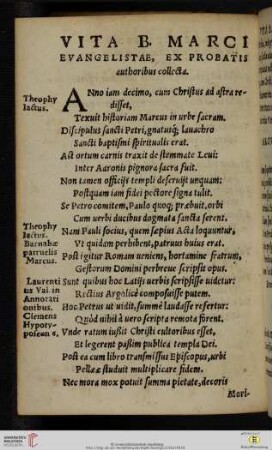 VITA B. MARCI
EVANGELISTAE, EX PROBATIS
authoribus collecta.
Theophy
lactus.
ANno iam decimo, cum Christus ad astra re-
disset,
Texuit historiam Marcus in urbe sacram.
Discipulus sancti Petri, gnatusq́; lauachro
Sancti baptismi spiritualis erat.
Ast ortum carnis traxit de stemmate Leui:
Inter Aaronis pignora sacra fuit.
Non tamen officijs templi deseruijt unquam:
Postquam iam fidei pectore signa tulit.
Se Petro comitem, Paulo quoq; præbuit, orbi
Cum uerbi ducibus dogmata sancta ferent.
Theophy
lactus.
Barnabæ
patruelis
Marcus.
Nam Pauli socius, quem sæpius Acta loquuntur,
Vt quidam perhibent, patruus huius erat.
Post igitur Romam ueniens, hortamine fratrum,
Gestorum Domini perbreue scripsit opus.
Laurenti
us Val. in
Annotati
onibus.
Clemens
Hypoty-
poseon 6.
Sunt quibus hoc Latijs uerbis scripsisse uidetur:
Rectius Argolicè composuisse putem.
Hoc Petrus ut uidit, summè laudasse refertur:
Quòd nihil à uero scripta remota forent.
Vnde ratum iußit Christi cultoribus esset,
Et legerent passim publica templa Dei.
Post ea cum libro transmissus Episcopus, urbi
Pellææ studuit multiplicare fidem.
Nec mora mox potuit summa pietate, decoris
Mori-